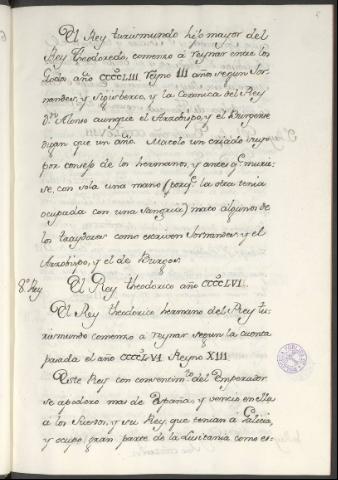 El Rey turismundo hijo mayor del
Rey Theodoredo, comenzo à reynar entre los
Godos año CCCCLIII Reyno III años segun Jor-
nandes, y Sigisberto, y la Coronica del Rey
Dn. Alonso aunque el Arzobispo, y el Burgense
digan que un año. Matolo un criado suyo
por consejo de los hermanos, y antes qe. murie-
se, con sola una mano (porqe. la otra tenia
ocupada con una sangria) mato algunos de
los traydores como escriven Jornandes, y el
Arzobispo, y el de Burgos.
8º Rey El Rey theodorico año CCCCLVI.
El Rey theodorico hermano del Rey tu-
rismundo comenzo à reynar segun la cuenta
pasada el año CCCCLVI Reyno XIII
Este Rey con consentimto. del Emperador
se apodero mas de España, y vencio en ella
à los Suevos, y su Rey, que tenian à Galicia,
y ocupo gran parte de la Lusitania como es-